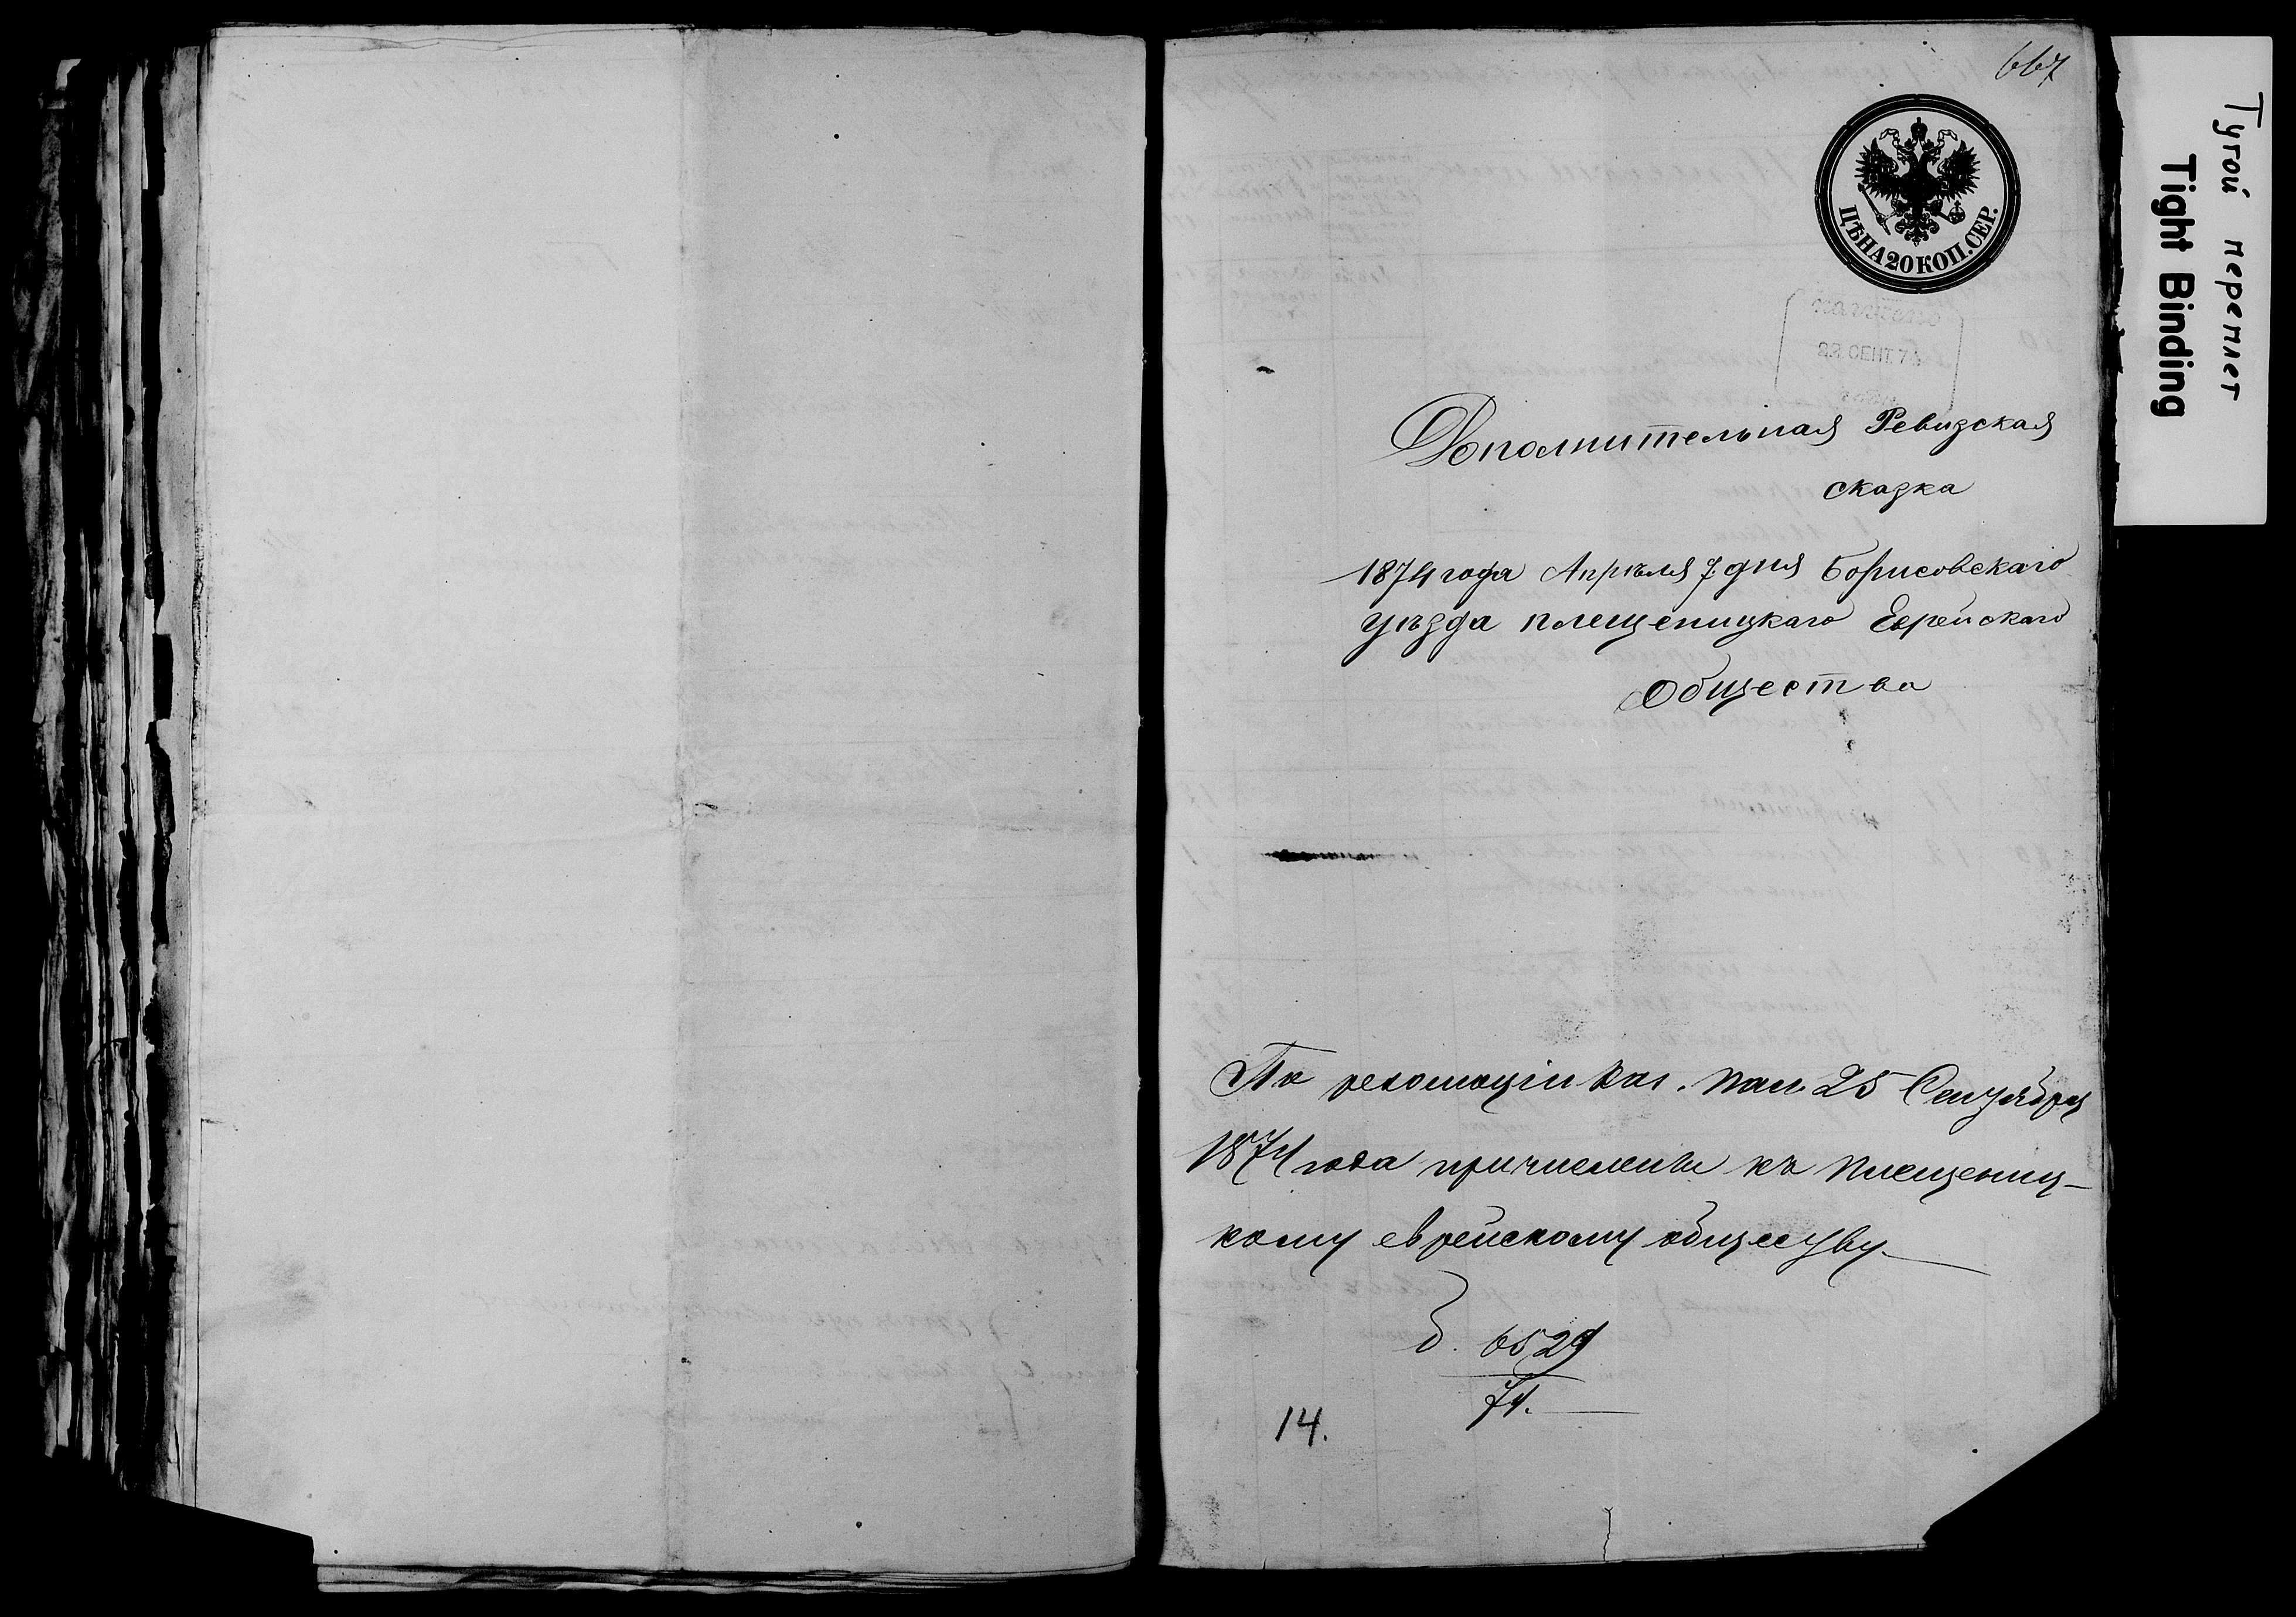 667
ЦѢНА 20 КОП. СЕР.
СЕНТ. 74
Дополнительная Ревизская
сказка
1874 года Апрѣля 7 дня Борисовскаго
уѣзда плещеницкаго Еврейскаго
Общества
По резолюціи Каз. пал. 25 Сентября
1874 года причислены къ плещениц-
кому еврейскому обществу
6529
74.
14.
Тугой переплет
Tight Binding